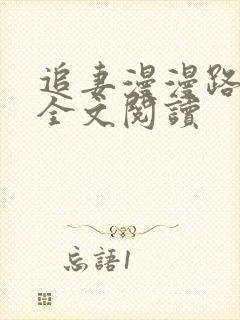 追妻漫漫路
全文閱讀
忘語1